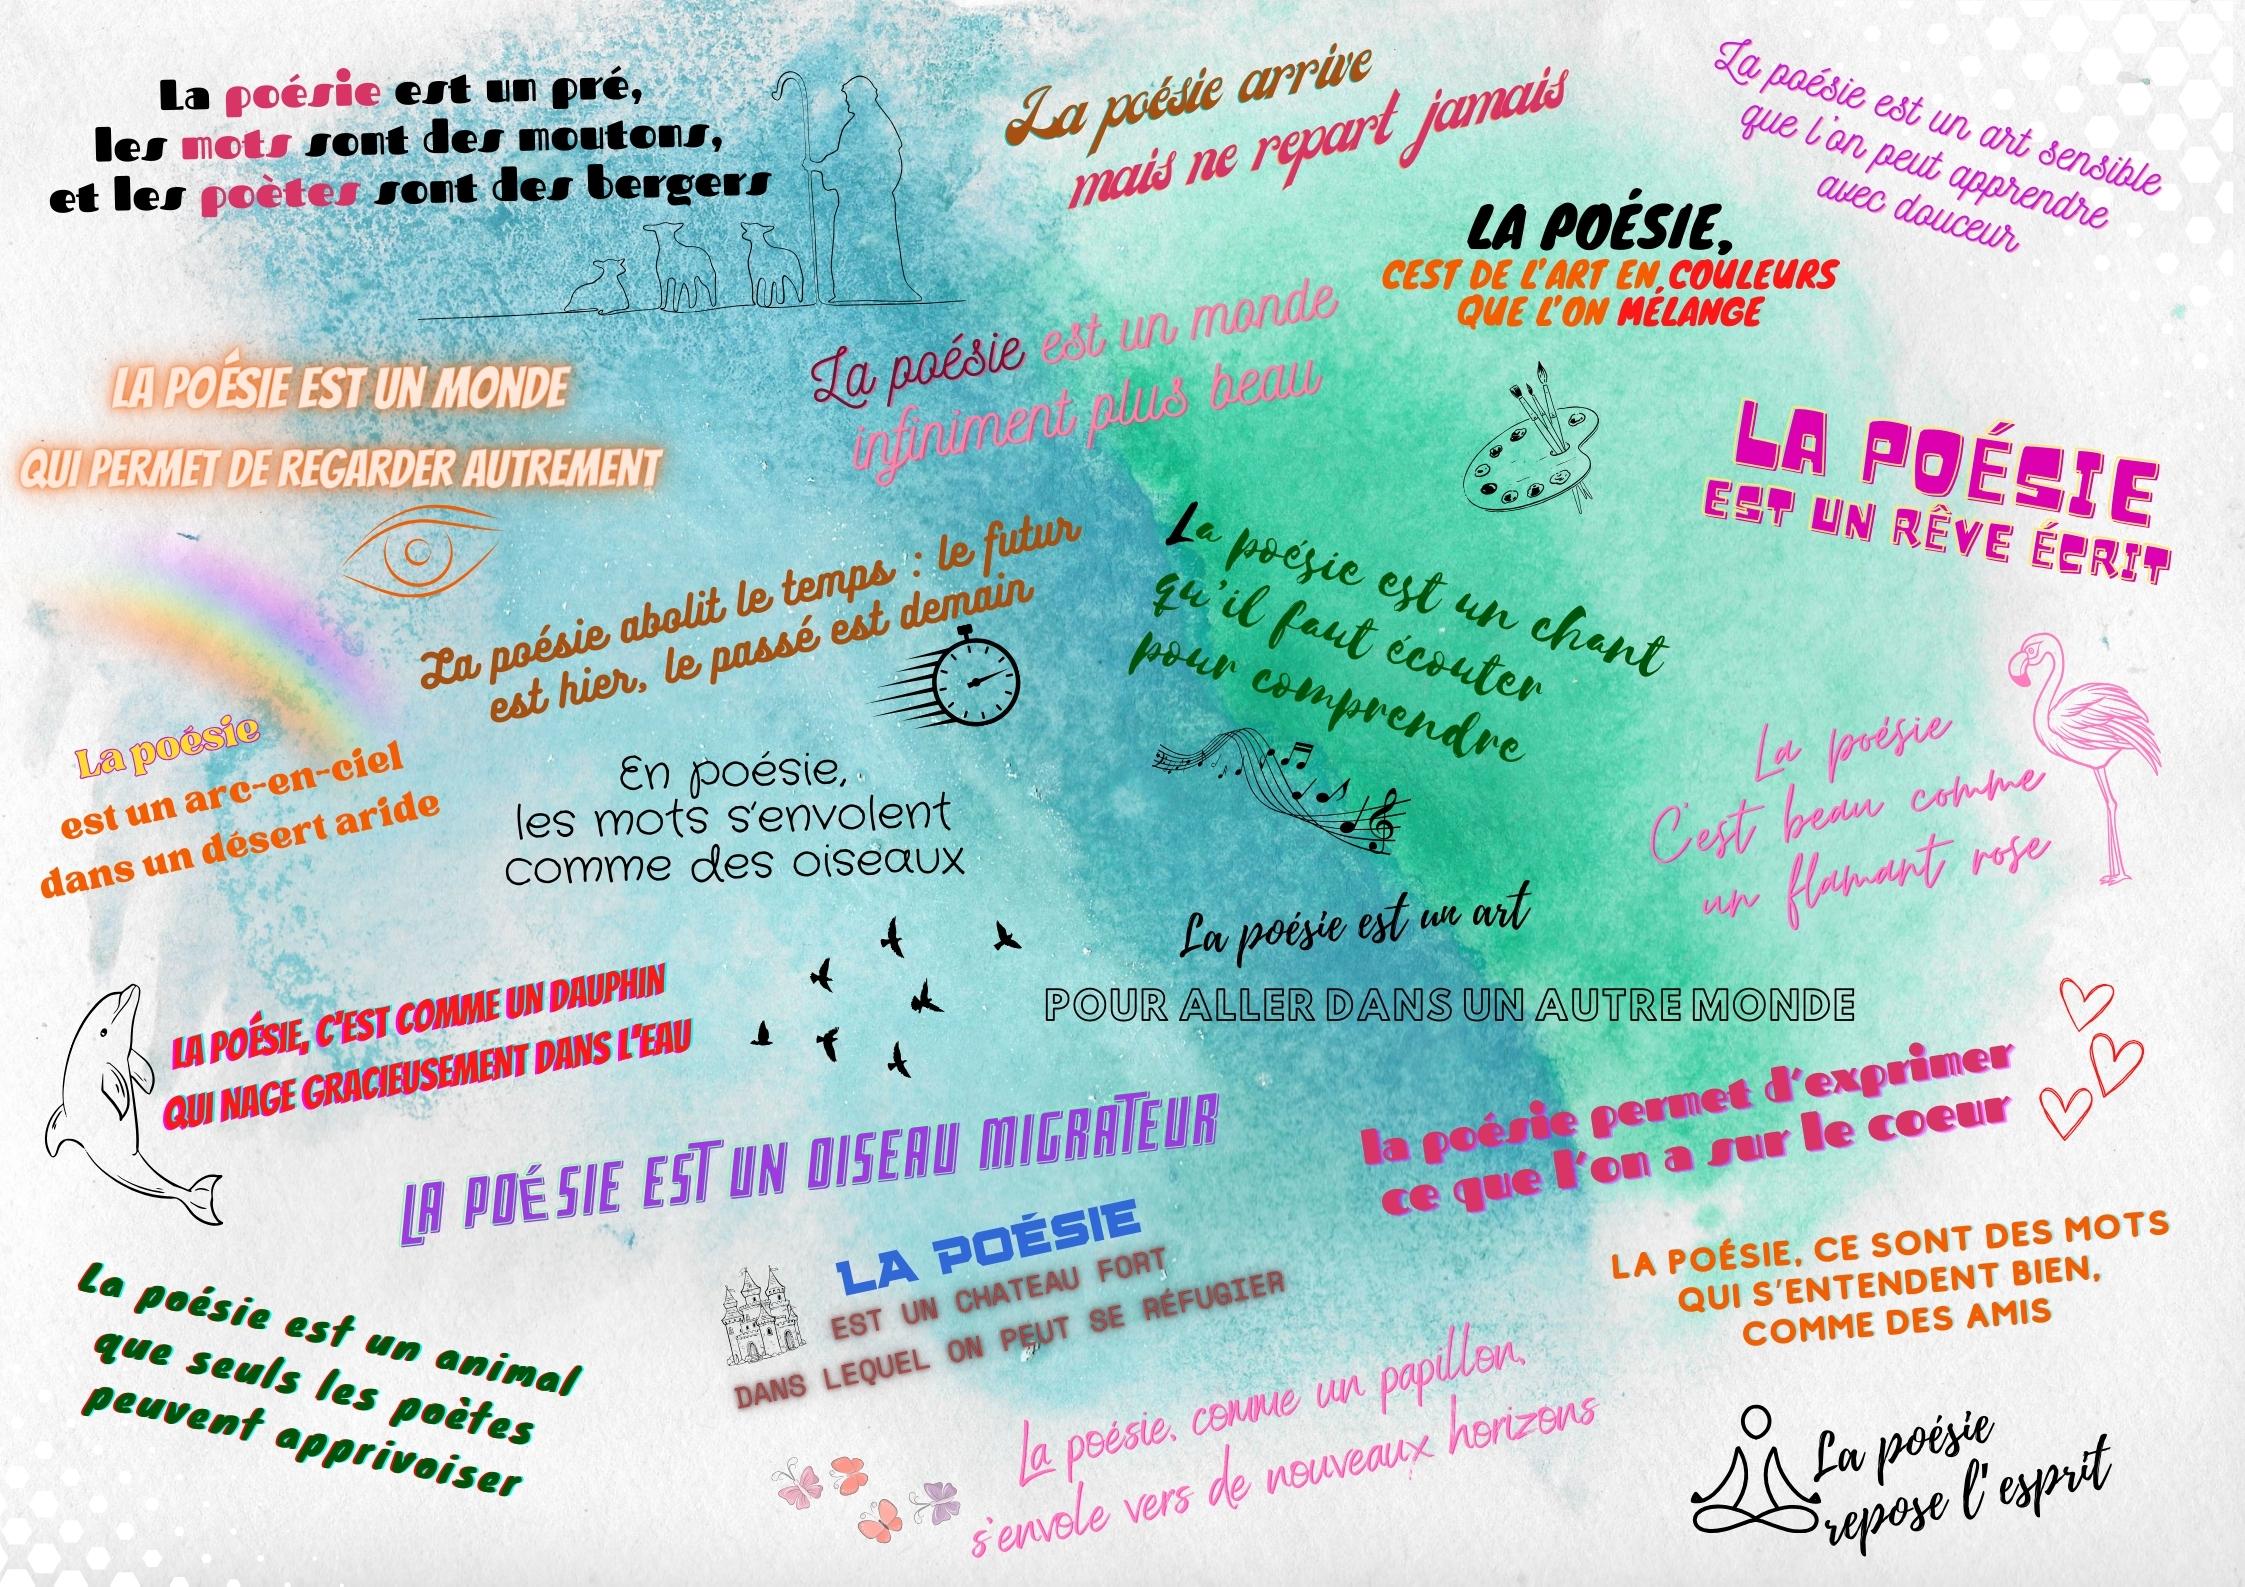 La poésie est un pré,
les mots sont des moutons,
et les poètes sont des bergers
La poésie arrive
mais ne repart jamais
La poésie est un art sensible
que l'on peut apprendre
avec douceur
LA POÉSIE,
CEST DE L'ART EN COULEURS
QUE L'ON MÉLANGE
La poésie est un monde
infiniment plus beau
LA POÉSIE EST UN MONDE
QUI PERMET DE REGARDER AUTREMENT
LA POÉSIE
EST UN RÊVE ÉCRIT
La poésie abolit le temps : le futur
est hier, le passé est demain
La poésie est un chant
qu'il faut écouter
pour comprendre
La poésie
est un arc-en-ciel
dans un désert aride
En poésie,
les mots s'envolent
comme des oiseaux
La poésie
C'est beau comme
un flamant rose
La poésie est un art
POUR ALLER DANS UN AUTRE MONDE
LA POÉSIE, C'EST COMME UN DAUPHIN
QUI NAGE GRACIEUSEMENT DANS L'EAU
la poésie permet d'exprimer
ce que l'on a sur le coeur
LA POÉSIE EST UN OISEAU MIGRATEUR
LA POÉSIE
EST UN CHATEAU FORT
DANS LEQUEL ON PEUT SE RÉFUGIER
LA POÉSIE, CE SONT DES MOTS
QUI S'ENTENDENT BIEN,
COMME DES AMIS
La poésie est un animal
que seuls les poètes
peuvent apprivoiser
La poésie, comme un papillon,
s'envole vers de nouveaux horizons
La poésie
repose l'esprit